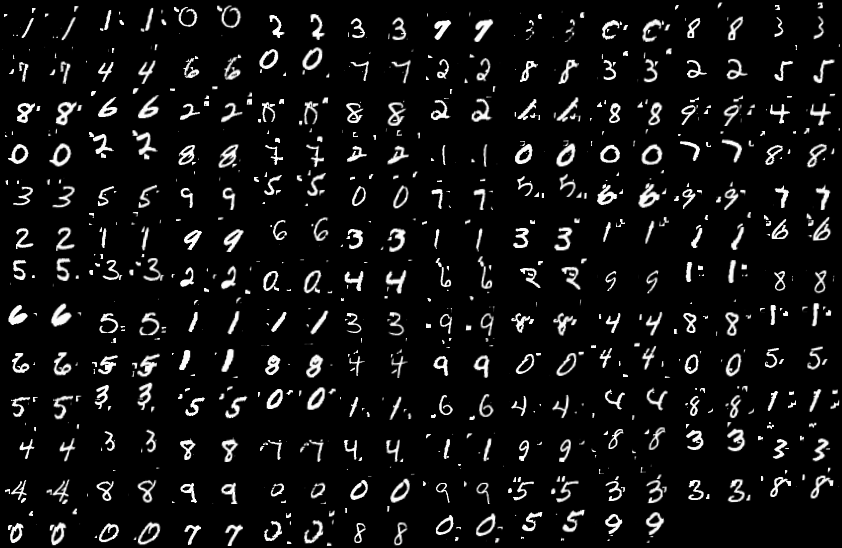 1 1 1 1 0 0 2 2 3 3 7 7 3 3 0 0 8 8 3 3
9 9 4 4 6 6 0 0 7 7 2 2 8 8 3 3 2 2 5 5
8 8 6 6 2 2 0 0 8 8 2 2 1 1 8 8 9 9 4 4
0 0 2 2 8 8 7 7 2 2 1 1 0 0 0 0 7 7 8 8
3 3 5 5 9 9 5 5 0 0 7 7 5 5 6 6 9 9 7 7
2 2 1 1 9 9 6 6 3 3 1 1 3 3 1 1 1 1 6 6
5 5 3 3 2 2 0 0 4 4 6 6 2 2 9 9 1 1 8 8
6 6 5 5 1 1 1 1 3 3 9 9 8 8 4 4 8 8 1 1
6 6 5 5 1 1 8 8 4 4 9 9 0 0 4 4 0 0 5 5
5 5 3 3 5 5 0 0 1 1 6 6 4 4 4 4 8 8 1 1
4 4 3 3 8 8 7 7 4 4 1 1 9 9 8 8 3 3 3 3
4 4 8 8 9 9 0 0 0 0 9 9 5 5 3 3 3 3 8 8
0 0 0 0 7 7 0 0 8 8 0 0 5 5 9 9